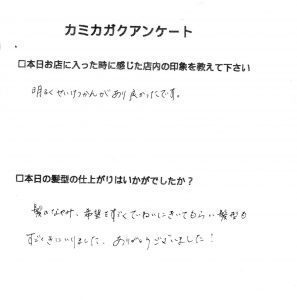 カミカガクアンケート
□本日お店に入った時に感じた店内の印象を教えて下さい
明るくせいけつかんがあり良かったです。
□本日の髪型の仕上がりはいかがでしたか？
髪のなやみ、希望をすごくていねいにきいてもらい髪型も
すごくきにいりました。ありがとうございました！